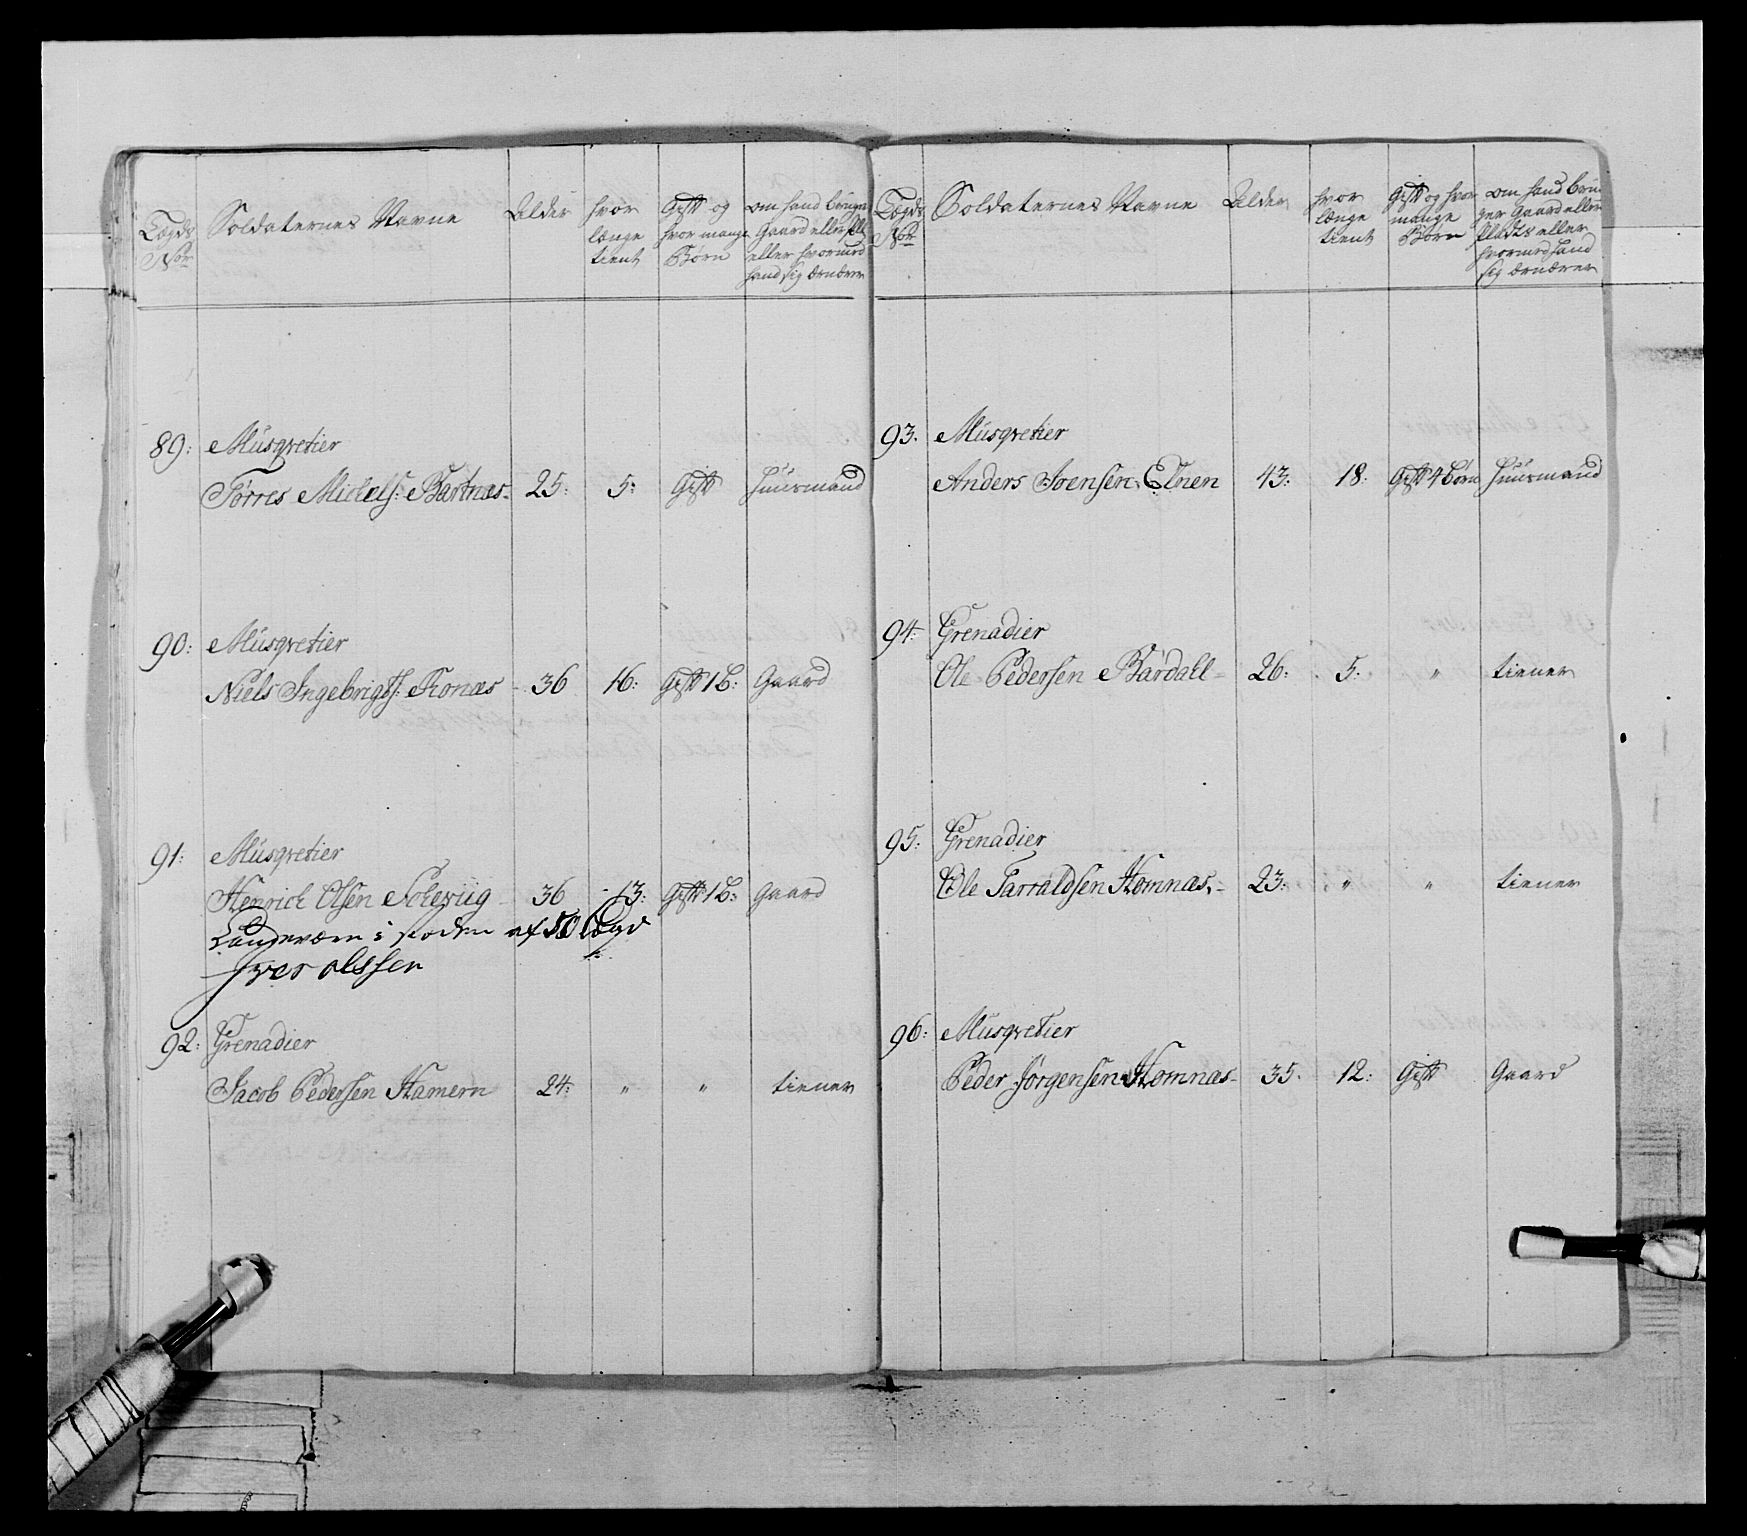 Lægds No. Soldaternes Navne Alder hvor længe tient Gift og hvor mange Børn om hand bruger Gaard eller Plads eller hvormed hand sig ernærer
89: Musqvetier
Törres Mickels: Bartnæs 25: 5: Gift Huusmand
90: Musqvetier
Niels Ingebrigts: Tronæs 36 16: Gift 1 b: Gaard
91: Musqvetier
Henrich Olsen Solevüg 36 13: Gift 1 b: Gaard
Landeværn i steden af 50 Lægd
Iver olssen
92: Grenadier
Jacob Pedersen Hamern 24: " " tiener
Lægds No. Soldaternes Navne Alder hvor længe tient Gift og hvor mange Børn om hand bruger Gaard eller Plads eller hvormed hand sig ernærer
93. Musqvetier
Anders Joensen Elnen 43: 18: Gift 4 børn Huusmand
94: Grenadier
Ole Pedersen Bardall 26: 5: " tiener
95: Grenadier
Ole Tarraldsen Homnæs 23: " " tiener
96: Musqvetier
Peder Jörgensen Homnæs 35. 12: Gift Gaard